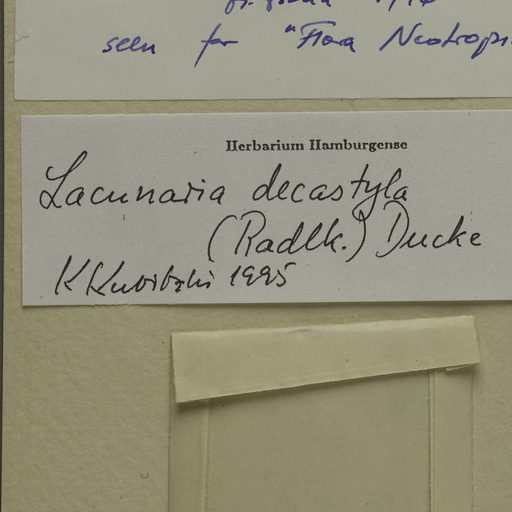 seen for "Flora Neotrop
Herbarium Hamburgense
Lacunaria decastyla
(Radlk.) Ducke
K Kubitzki 1995